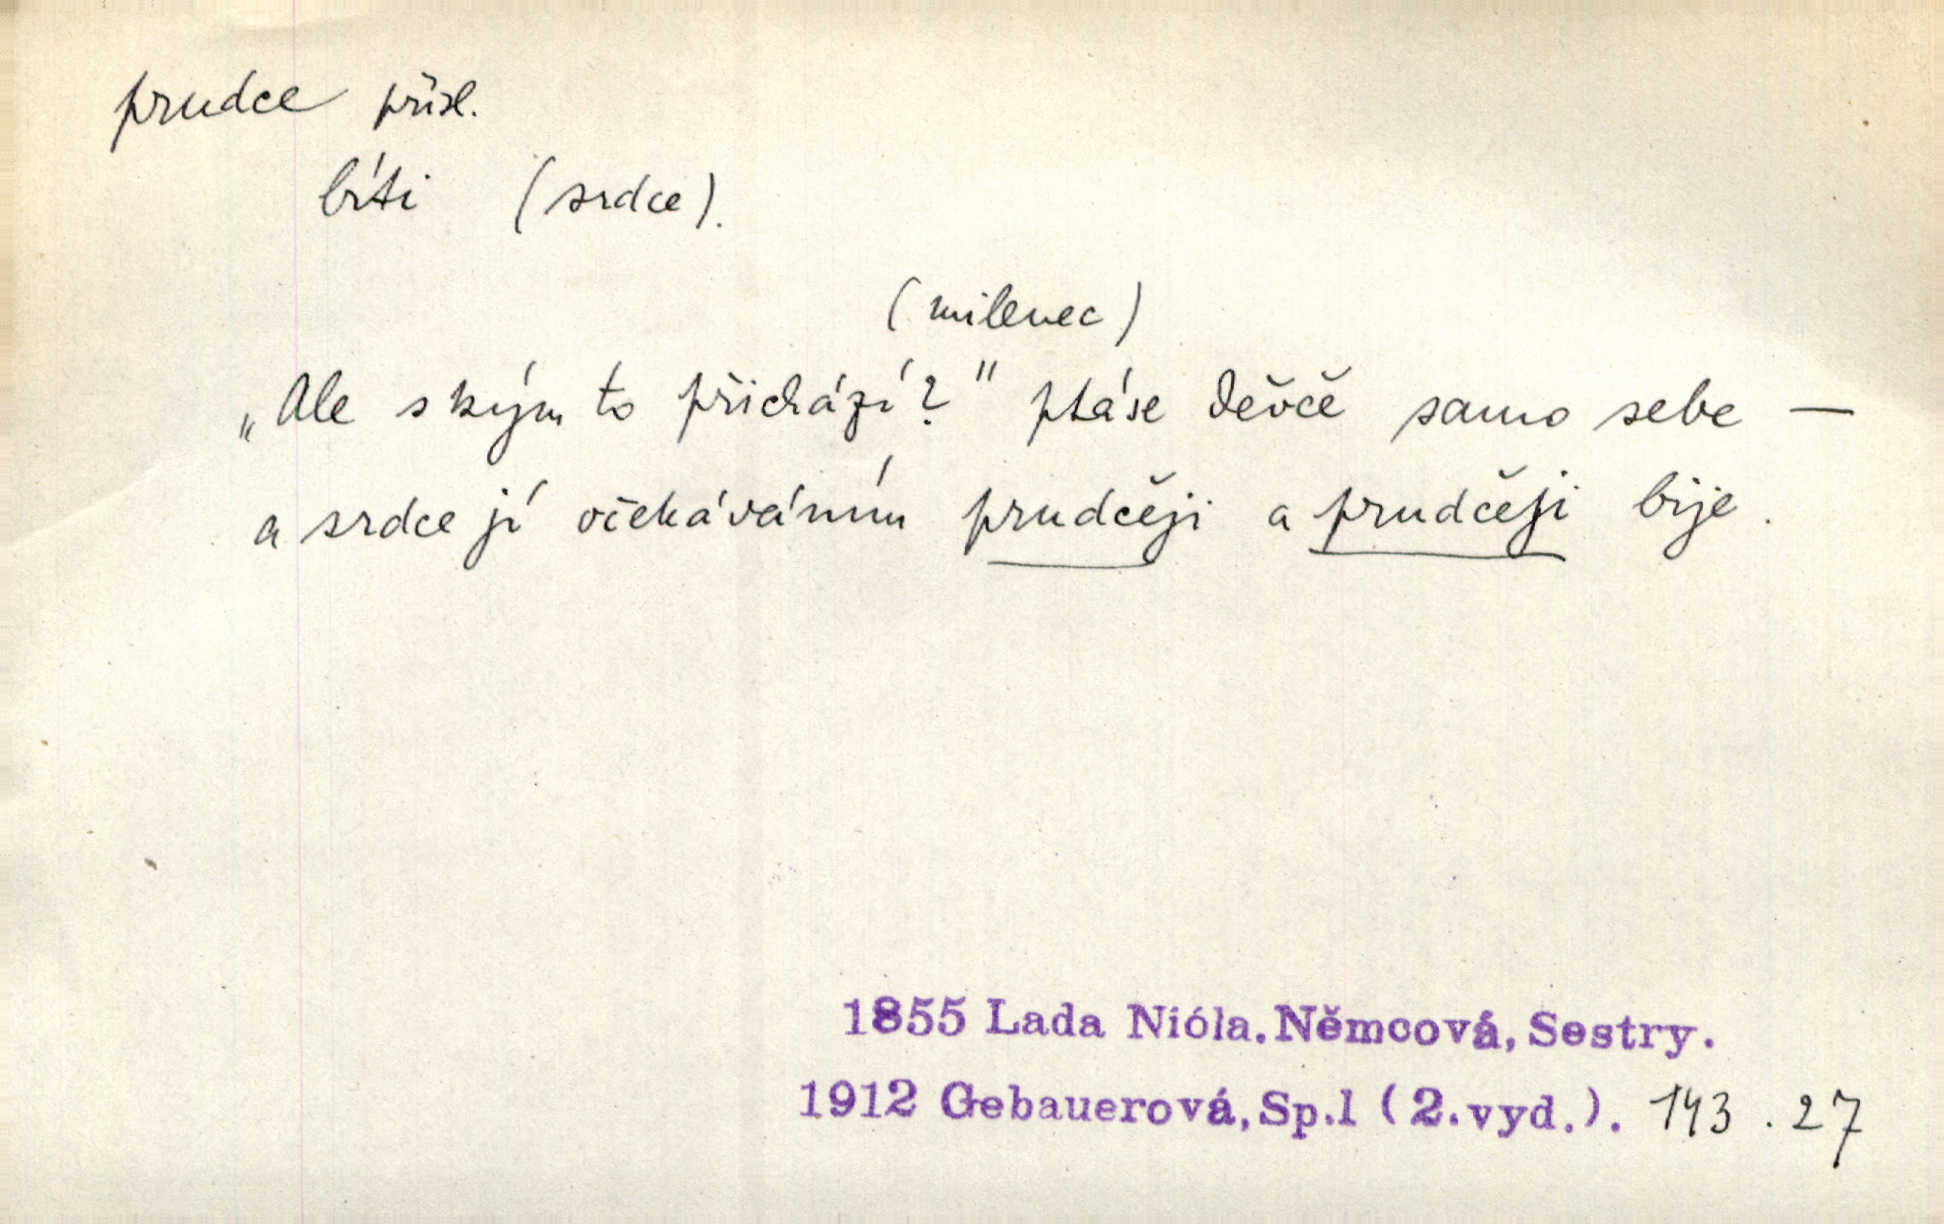 prudce přísl.
bíti (srdce).
(milenec)
„Ale s kým to přichází?" ptá se děvče samo sebe —
a srdce jí očekáváním prudčeji a prudčeji bije.
1855 Lada Nióla. Němcová, Sestry.
1912 Gebauerová, Sp.1 (2.vyd.). 143.27